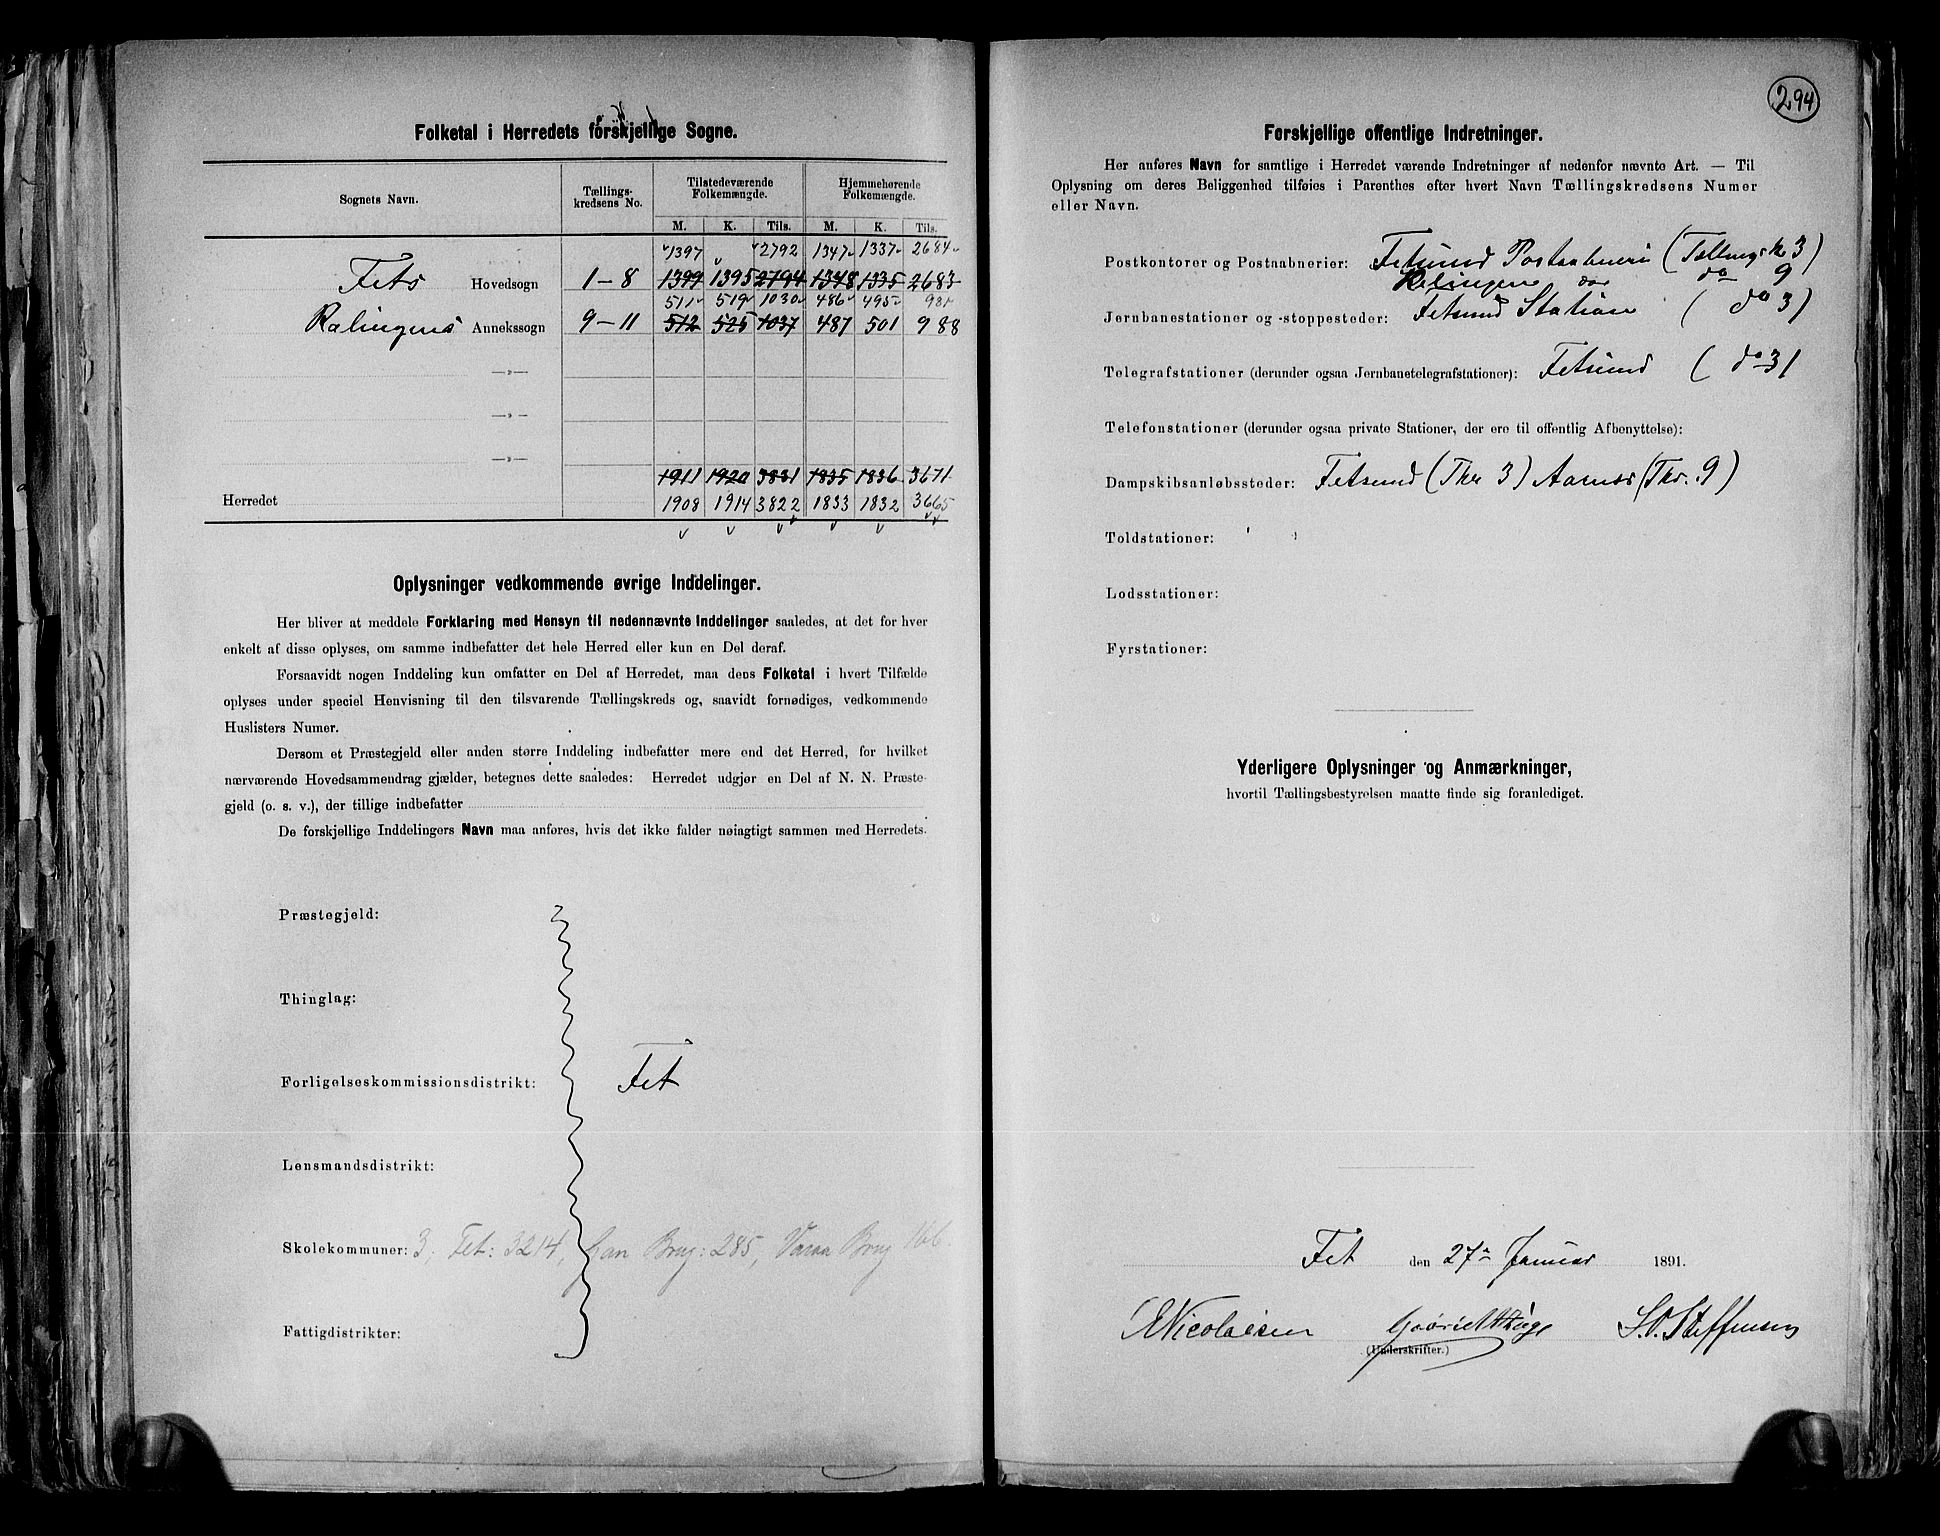 Folketal i Herredets forskjellige Sogne.
Sognets Navn. Tællingskredsens No. Tilstedeværende Folkemængde. Hjemmehørende Folkemængde.
M. K. Tils. M. K. Tils.
1397 2792 1347 1337 2684
Fets Hovedsogn 1-8 1399 1395 2794 1348 1335 2683
511 519 1030 486 495 981
Ralingens Annekssogn 9-11 512 525 1037 487 501 988
—»—
—»—
—»—
1911 1920 3831 1835 1836 3671
Herredet 1908 1914 3822 1833 1832 3665
Oplysninger vedkommende øvrige Inddelinger.
Her bliver at meddele Forklaring med Hensyn til nedennævnte Inddelinger saaledes, at det for hver
enkelt af disse oplyses, om samme indbefatter det hele Herred eller kun en Del deraf.
Forsaavidt nogen Inddeling kun omfatter en Del af Herredet, maa dens Folketal i hvert Tilfælde
oplyses under speciel Henvisning til den tilsvarende Tællingskreds og, saavidt fornødiges, vedkommende
Huslisters Numer.
Dersom et Præstegjeld eller anden større Inddeling indbefatter mere end det Herred, for hvilket
nærværende Hovedsammendrag gjælder, betegnes dette saaledes: Herredet udgjør en Del af N. N. Præste-
gjeld (o. s. v.), der tillige indbefatter
De forskjellige Inddelingers Navn maa anføres, hvis det ikke falder nøiagtigt sammen med Herredets.
Præstegjeld:
Thinglag:
Forligelseskommissionsdistrikt: Fet
Lensmandsdistrikt:
Skolekommuner: 3, Fet: 3214, Gan Brug: 285, Varaa Brug 166.
Fattigdistrikter:
294
Forskjellige offentlige Indretninger.
Her anføres Navn for samtlige i Herredet værende Indretninger af nedenfor nævnte Art. — Til
Oplysning om deres Beliggenhed tilføies i Parenthes efter hvert Navn Tællingskredsens Numer
eller Navn.
Postkontorer og Postaabnerier: Fetsund Postaabneri (Tællingsk 3)
Relingens do do 9
Jernbanestationer og -stoppesteder: Fetsund Station (do 3)
Telegrafstationer (derunder ogsaa Jernbanetelegrafstationer): Fetsund (do 3)
Telefonstationer (derunder ogsaa private Stationer, der ere til offentlig Afbenyttelse):
Dampskibsanløbssteder: Fetsund (Thr 3) Aarnes (Thr. 9)
Toldstationer:
Lodsstationer:
Fyrstationer:
Yderligere Oplysninger og Anmærkninger,
hvortil Tællingsbestyrelsen maatte finde sig foranlediget.
Fet den 27de Januar 1891.
Nicolaisen S. O. Steffensen
(Underskrifter.)